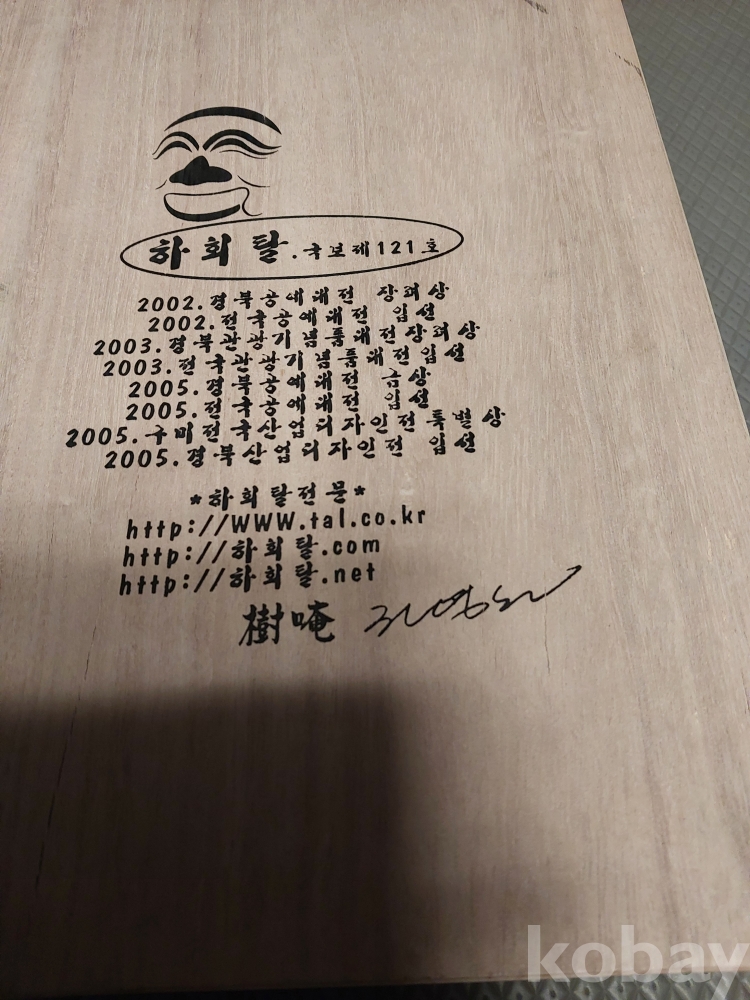 하회탈.국보제121호
2002.경북공예대전 장려상
2002.전국공예대전 입선
2003.경북관광기념품대전장려상
2003.전국관광기념품대전입선
2005.경북공예대전 금상
2005.전국공예대전 입선
2005.구미전국산업디자인전특별상
2005.경북산업디자인전 입선
*하회탈전문*
http://WWW.tal.co.kr
http://하회탈.com
http://하회탈.net
樹唵
kobay